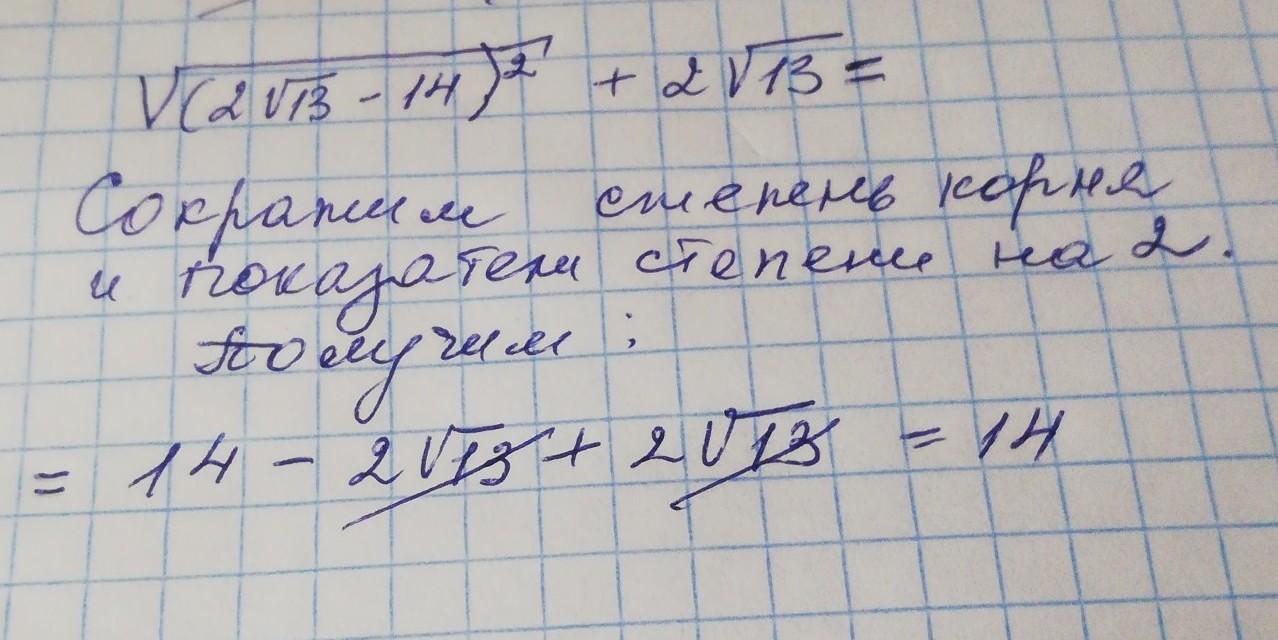 √(2√13 - 14)² + 2√13 =
Сократим степень корня
и показатели степени на 2.
Получим :
= 14 - 2√13 + 2√13 = 14